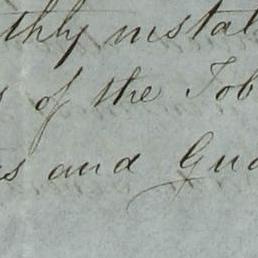 thly instal
s of the Tob
s and Gua